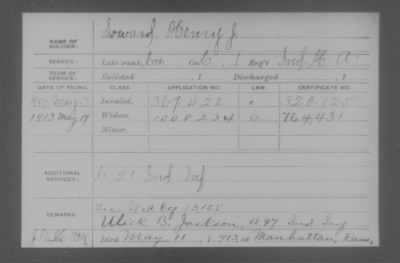 NAME OF SOLDIER: Soward Henry J.
SERVICE: Late rank, Cor. Co. C, 1 Reg't Ind. H. A.
TERM OF SERVICE: Enlisted , 1 Discharged , 1
DATE OF FILING. CLASS. APPLICATION NO. LAW. CERTIFICATE NO.
May 3 Invalid, 367422 320.125
1913 May 19 Widow, 1008234 764,431
Minor,
ADDITIONAL SERVICES: 21 Ind Inf
REMARKS: 13155
B. Jackson, A 97 Ind Inf
Died May 11, 1913, at Manhattan, Kans.